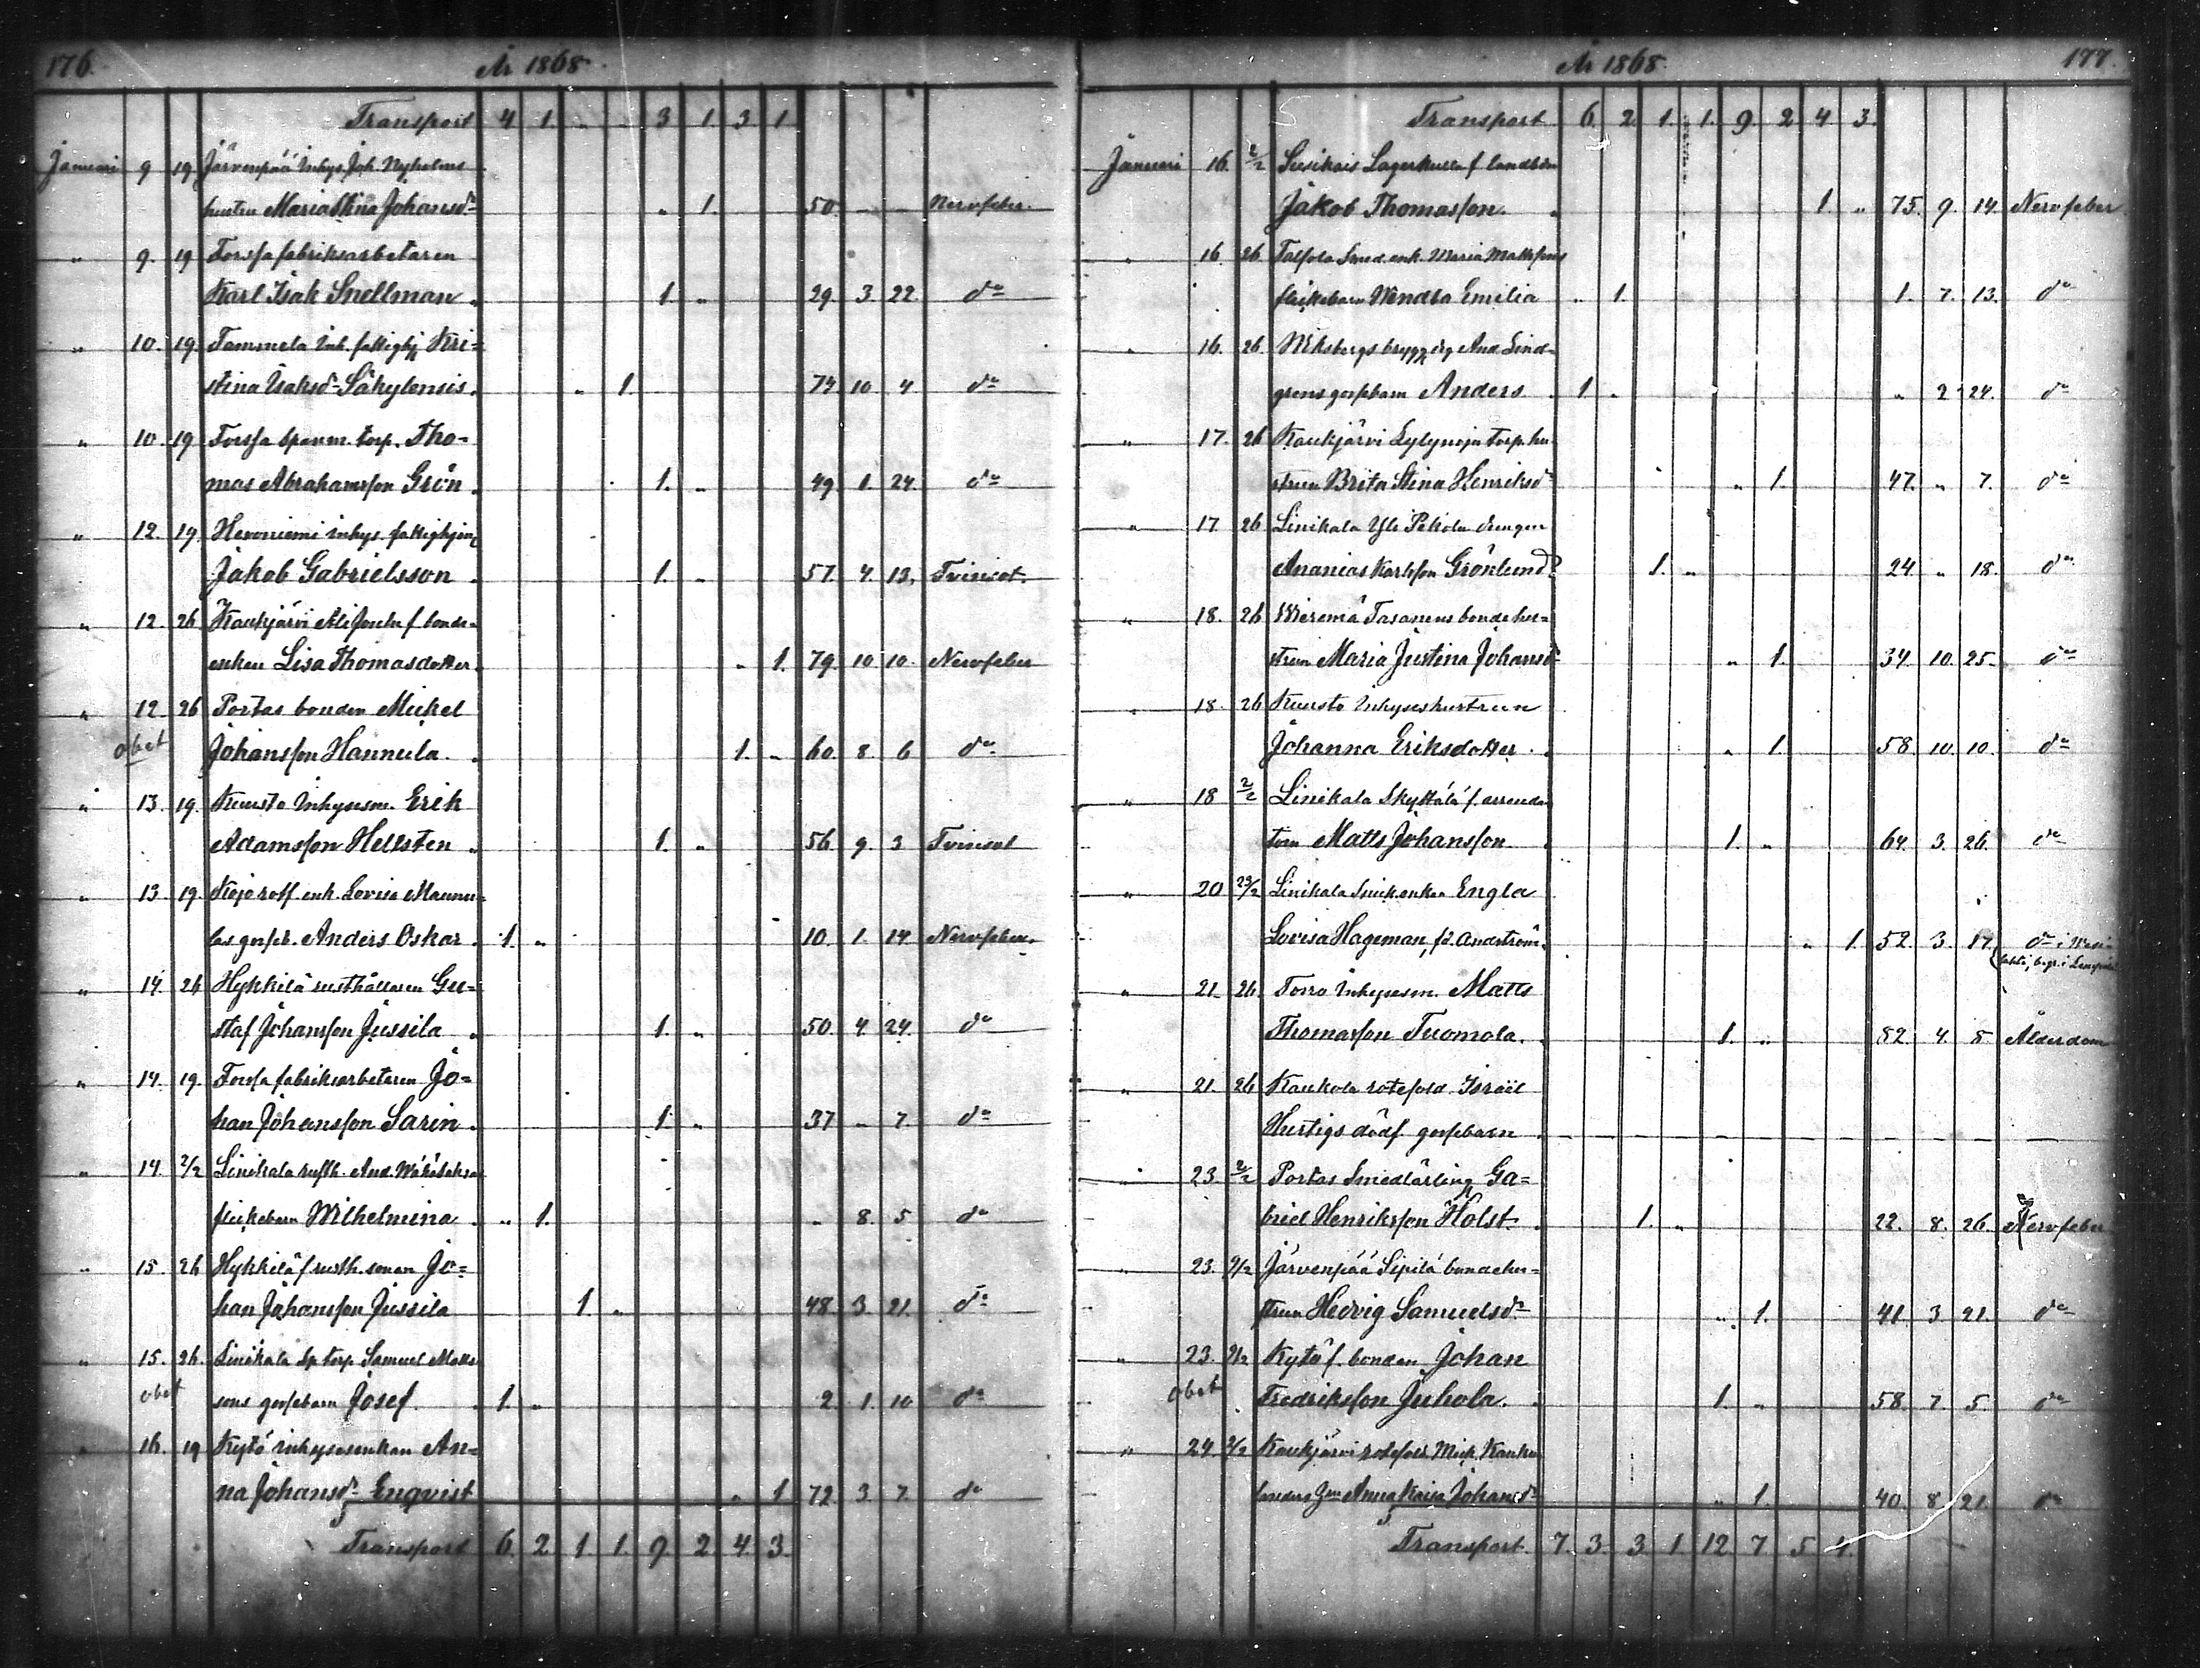 176. År 1868.
Transport 4 1. „ „ 3 1. 3 1.
Januari 9 19 Järvenpää Inhys. Joh. Nyholms
hustru Maria Stina Johansdr „ 1. 50. Nervfeber.
„ 9. 19 Forssa fabriksarbetaren
Karl Isak Snellman. 1. „ 29. 3. 22. do
„ 10. 19. Tammela Inh. fattighj. Kri-
stina Isaksdr Säkylensis. „ 1. 74 10 4 do
„ 10. 19 Forssa spanm. torp. Tho-
mas Abrahamsson Grön. 1. „ 49 1. 24. do
„ 12. 19. Heroniemi inhys. fattighj.
Jakob Gabrielsson 1. „ 57. 4. 13. Tvinsot.
„ 12. 26 Kaukjärvi f. bonde-
enkan Lisa Thomasdotter. „ 1. 79. 10 10. Nervfeber
„ 12. 26 Portas bonden Mickel
obet Johansson Hannula. 1. „ 60. 8. 6 do
„ 13. 19. Kuusto Inhysesm. Erik
Adamsson Hellsten „ 1. „ 56. 9. 3 Tvinsot
„ 13. 19. Kojo rotf. enk. Lovisa Mannu-
las gosseb. Anders Oskar. 1. „ 10. 1. 14. Nervfeber.
„ 14. 26 Hykkilä rusthållaren Gu-
staf Johansson Jussila 1. „ 50. 4. 24. do
„ 14. 19. Forssa fabriksarbetaren Jo-
han Johansson Sarin. 1. „ 37 „ 7. do
„ 14. 2/2 Linikala rusth. And.
flickebarn Wilhelmina. „ 1. „ 8. 5 do
„ 15. 26 Hykkilä f. rusth. sonen Jo-
han Johansson Jussila 1. „ 48. 3. 21. do
„ 15. 26. Linikala Sp. torp. Samuel Matts-
obet sons gossebarn Josef. 1. „ 2. 1. 10 do
„ 16. 19 Kytö inhysesenkan An-
na Johansdr Enqvist „ 1 72. 3. 7. do
Transport 6. 2. 1. 1. 9. 2. 4. 3.
År 1868. 177.
Transport 6. 2. 1. 1. 9. 2 4 3.
Januari 16. 2/2 Susikais Lagerkulla f. landbön
Jakob Thomasson. 1. „ 75. 9. 14. Nervfeber
„ 16. 26. Talpola Smed. enk. Maria Mattssons
flickebarn Wendla Emilia „ 1. 1. 7. 13. do
„ 16. 26. Wiksbergs bryggdrg And. Lind-
grens gossebarn Anders. 1 „ „ 2 24. do
„ 17. 26 Kaukjärvi torp. hu-
strun Brita Stina Henriksdr „ 1. 47. „ 7. do
„ 17 26 Linikala Yli Pekola drängen
Ananias Karlsson Grönlund 1. „ 24. „ 18. do
„ 18. 26 Wieremä Tasanens bondehu-
strun Maria Justina Johansdr „ 1. 34. 10. 25. do
„ 18. 26 Kuusto Inhyseshustrun
Johanna Eriksdotter. „ 1. 58. 10. 10. do
„ 18 2/2 Linikala Skyttälä f. arrenda-
torn Matts Johansson 1. „ 64. 3. 26. do
„ 20 23/2 Linikala enkan Engla
Lovisa Hageman, fd. Andström. „ 1. 52. 3. 17. do i
begr. i
„ 21. 26. Torro Inhysesm. Matts
Thomasson Tuomola. 1. „ 82. 4. 8 Ålderdom
„ 21. 26 Kaukola rotesold. Israël
Hurtigs dödf. gossebarn
„ 23. 2/2 Portas Smedlärling Ga-
briel Henriksson Holst 1. „ 22. 8. 26. Nervfeber
„ 23. 2/2 Järvenpää Sipilä bondehu-
strun Hedvig Samuelsdr „ 1. 41. 3 21. do
„ 23. 2/2 Kytö f. bonden Johan
obet Fredriksson Juhola. 1. „ 58. 7. 5. do
„ 24 2/2 Kaukjärvi rotefat. Mick.
Anna Kaisa Johansdr „ 1. 40. 8. 21. do
Transport. 7. 3. 3. 1. 12. 7 5